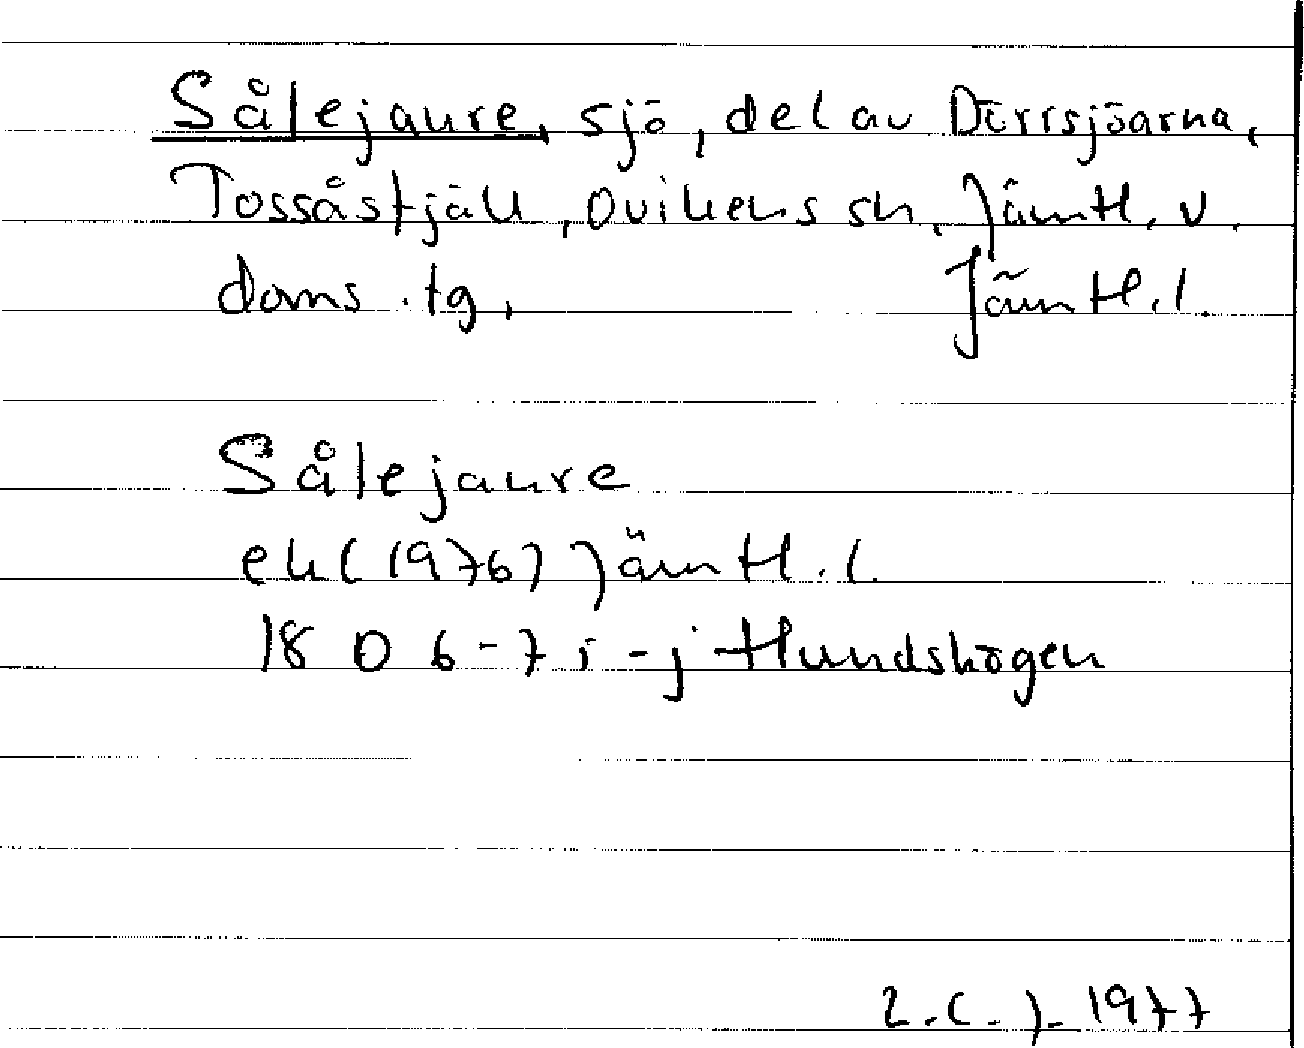 Sålejaure, sjö, del av Dörrsjöarna,
Tossåsfjäll, Ovikens sn, Jämtl. v.
doms. tg, Jämtl. l.
Sålejaure
ek (1976) Jämtl. l.
18 D 6-7 i-j Hundshögen
L. C. J. 1977